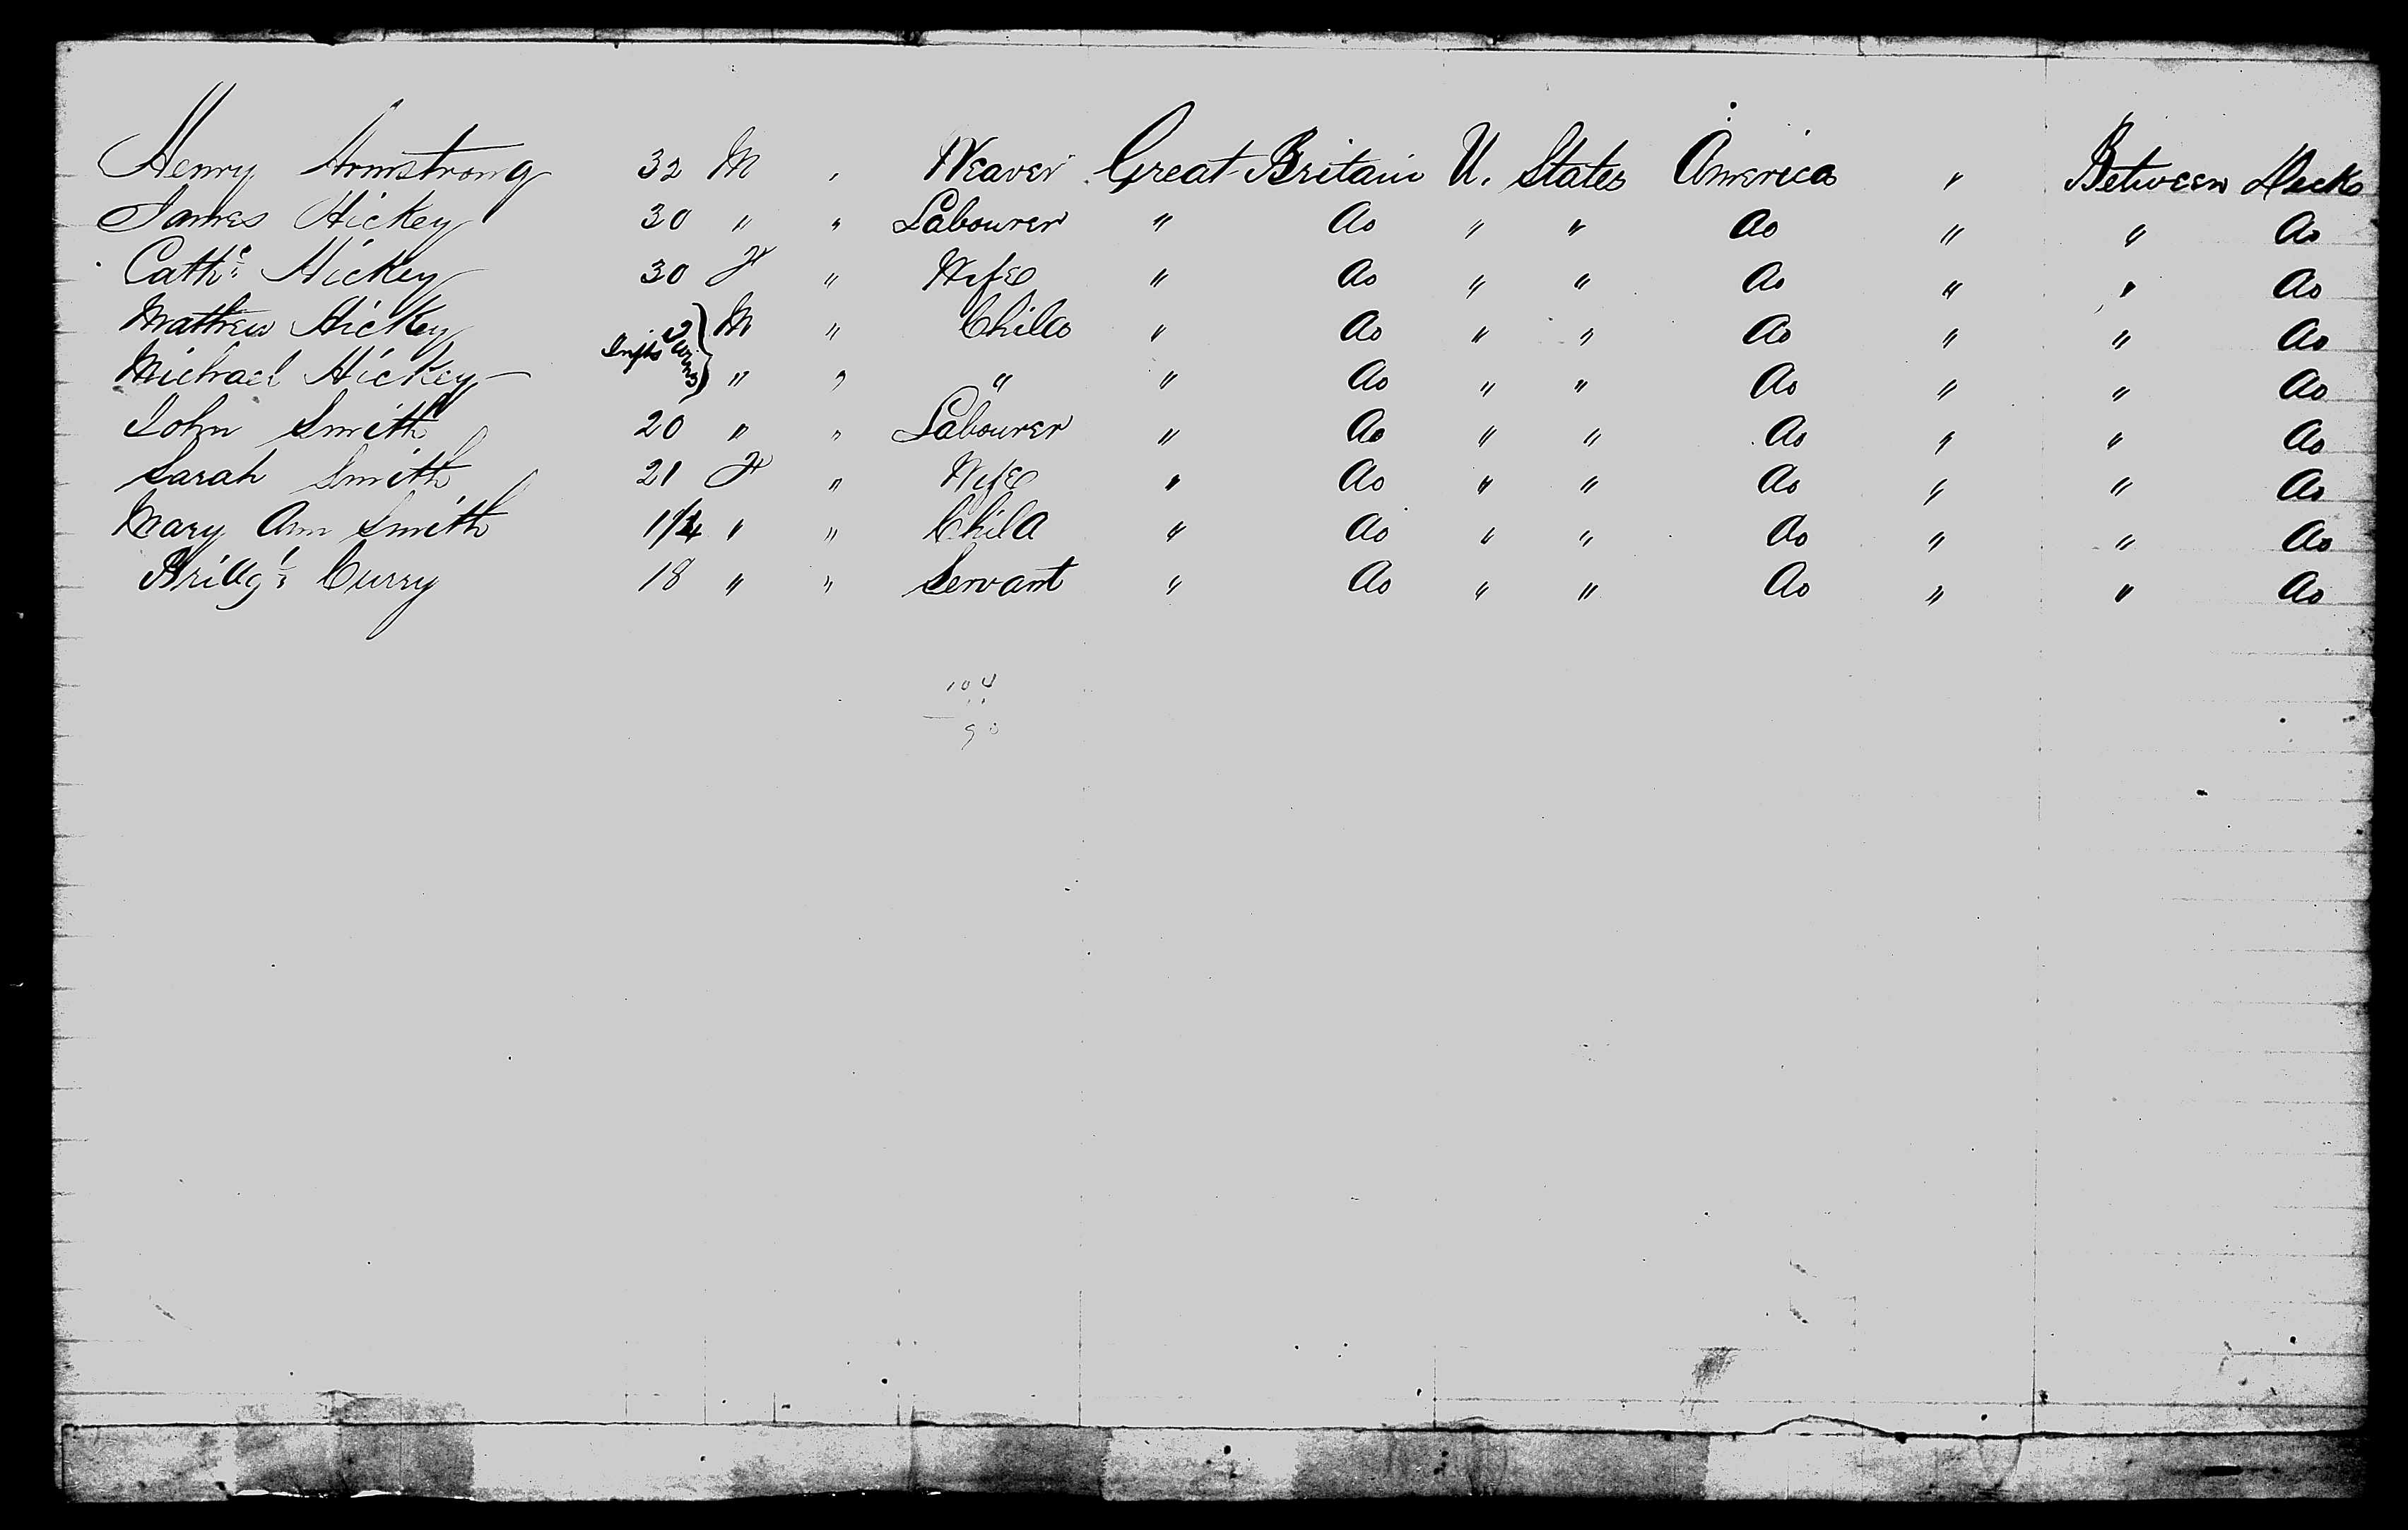 Henry Armstrong 32 M " Weaver Great Britain U. States America " Between Decks
James Hickey 30 " " Labourer " Do " " Do " " Do
Cathe Hickey 30 F " Wife " Do " " Do " " Do
Mathew Hickey Infts M " Child " Do " " Do " " Do
Michael Hickey " " " " Do " " Do " " Do
John Smith 20 " " Labourer " Do " " Do " " Do
Sarah Smith 21 F " Wife " Do " " Do " " Do
Mary Ann Smith 1 1/4 " " Child " Do " " Do " " Do
Bridgt Curry 18 " " Servant " Do " " Do " " Do
104
90